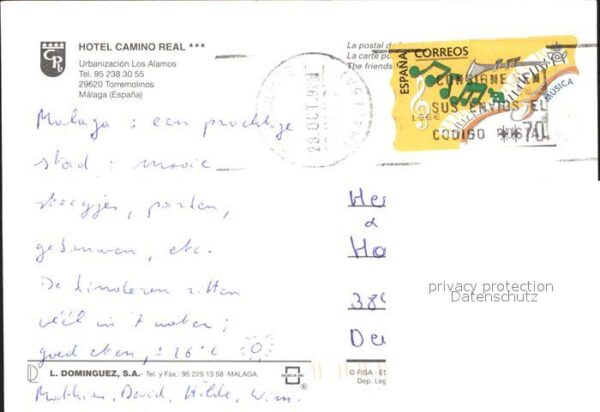 HOTEL CAMINO REAL ***
Urbanización Los Alamos
Tel. 95 238 30 55
29620 Torremolinos
Málaga (España)
La postal de
La carte po
The friends
ESPAÑA
CORREOS
CONSIGNE EN
SUS ENVIOS EL
CODIGO POSTAL
**70
MUSICA
29 OCT. 98
Malaga : een prachtige
stad : mooie
steegjes, parken,
gebouwen, etc.
De kinderen zitten
véél in 't water ;
goed eten, ± 26°C
Mathias, David, Hilde, Wim.
He
&
Ha
privacy protection
Datenschutz
389
De
L. DOMINGUEZ, S.A.- Tel. y Fax.: 95 225 13 58 MALAGA
© FISA - ES
Dep. Leg.